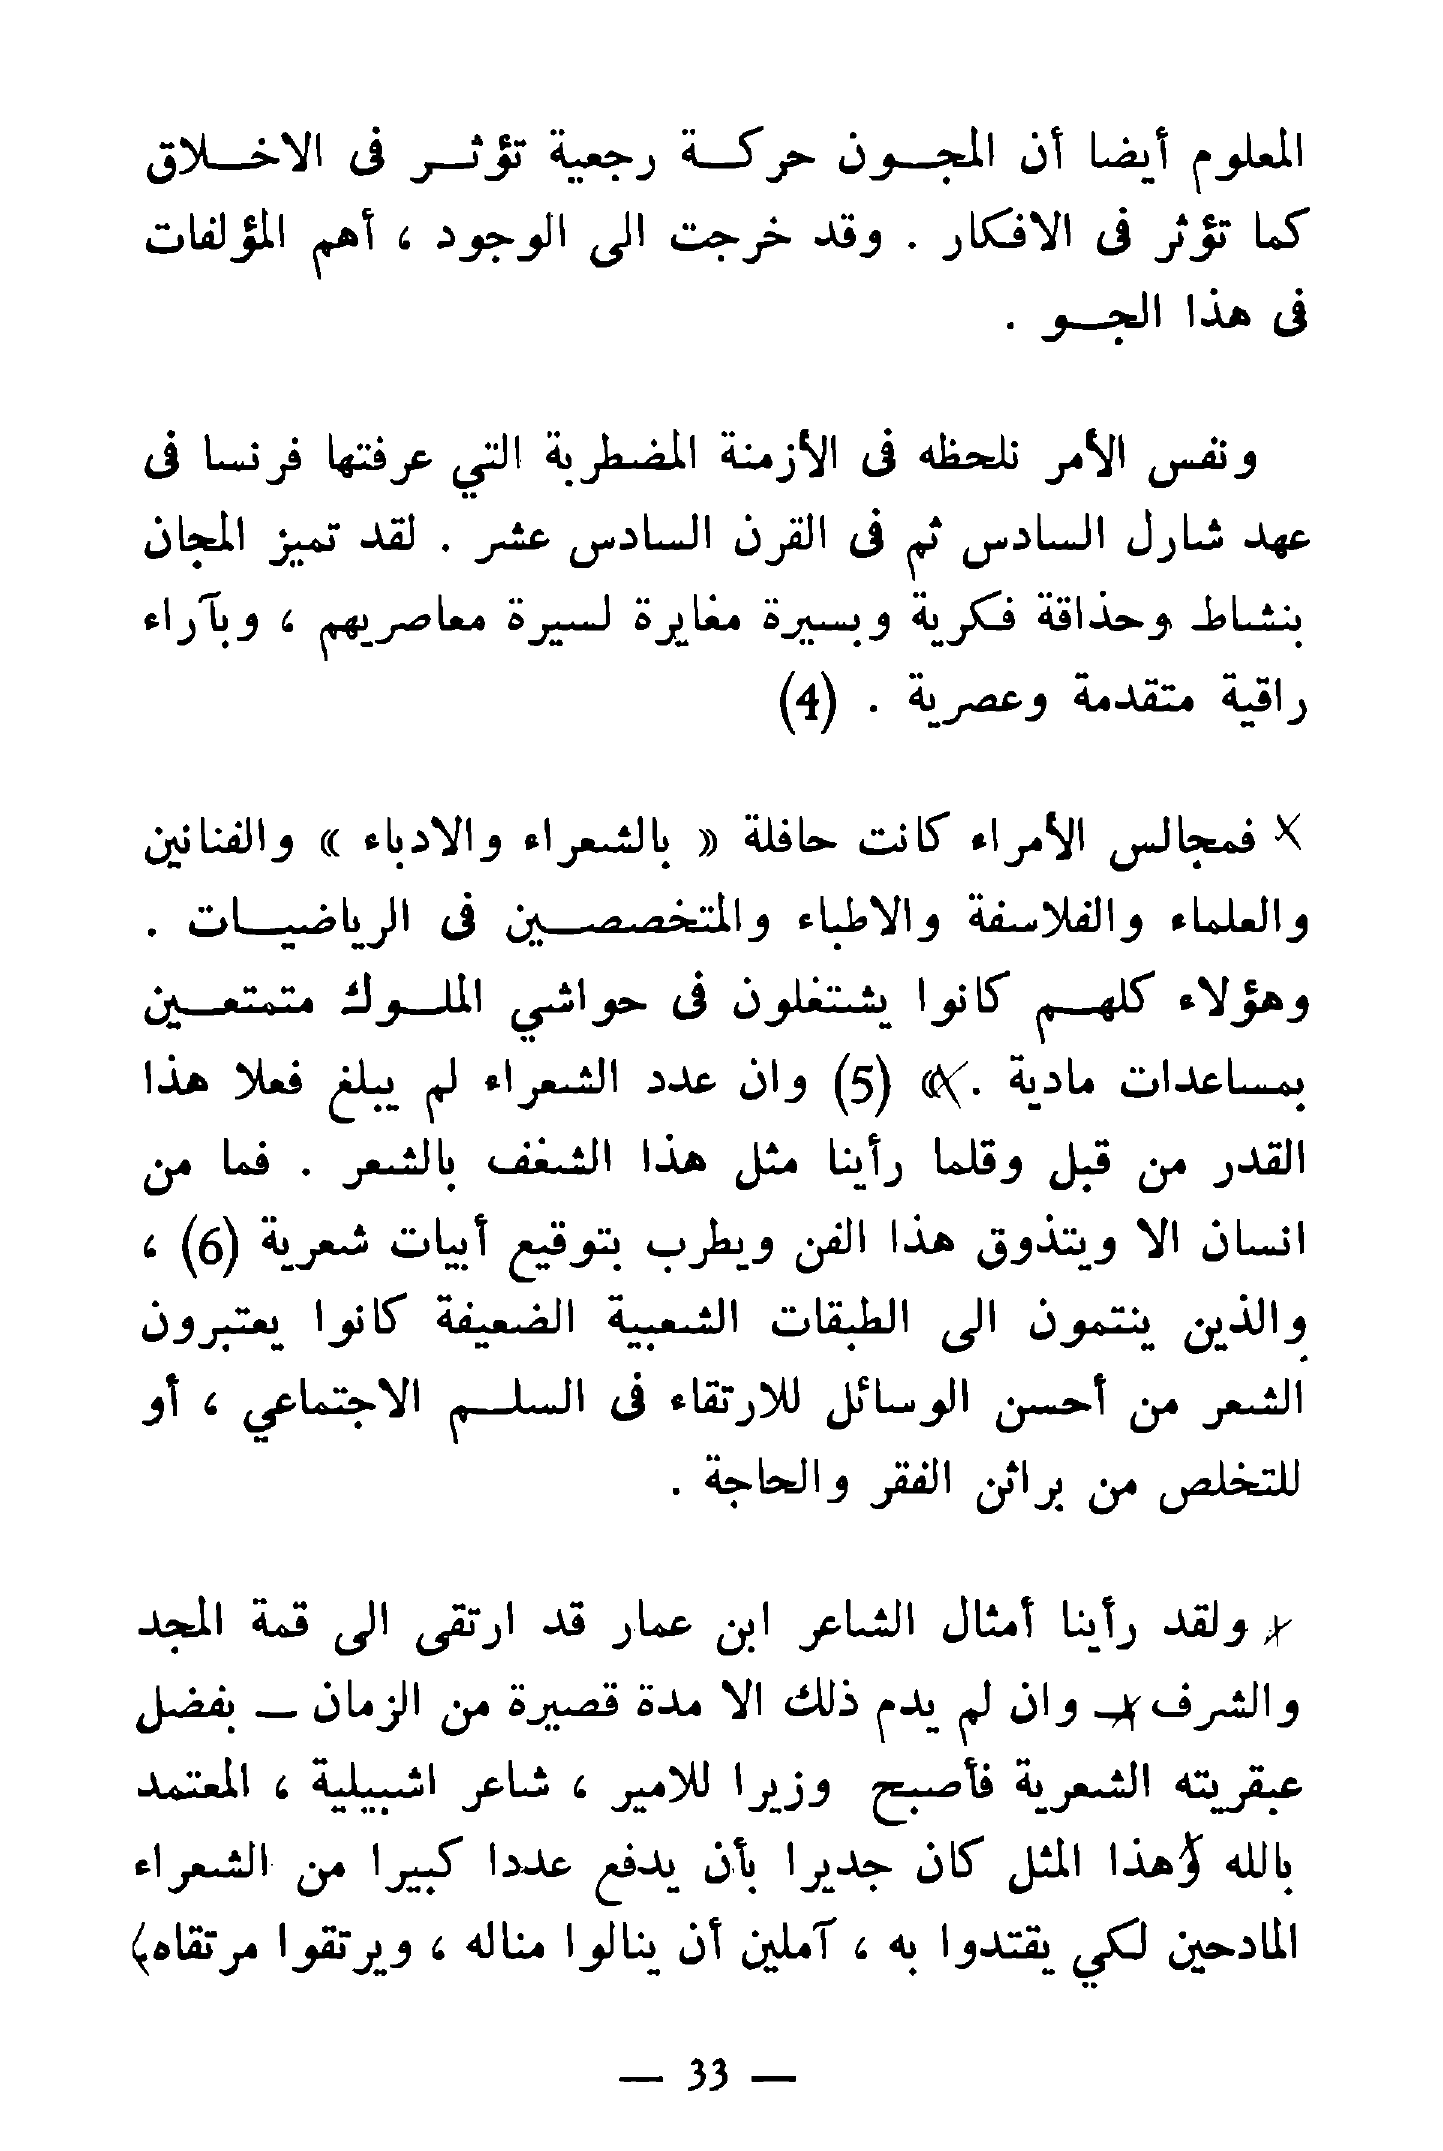 المعلوم أيضا أن المجون حركة رجعية تؤثر فى الاخلاق
كما تؤثر فى الافكار . وقد خرجت الى الوجود ، أهم المؤلفات
فى هذا الجو .
ونفس الأمر نلحظه فى الأزمنة المضطربة التي عرفتها فرنسا فى
عهد شارل السادس ثم فى القرن السادس عشر . لقد تميز المجان
بنشاط وحذاقة فكرية وبسيرة مغايرة لسيرة معاصريهم ، وبآراء
راقية متقدمة وعصرية . (4)
فمجالس الأمراء كانت حافلة « بالشعراء والادباء » والفنانين
والعلماء والفلاسفة والاطباء والمتخصصين فى الرياضيات .
وهؤلاء كلهم كانوا يشتغلون فى حواشي الملوك متمتعين
بمساعدات مادية . » (5) وان عدد الشعراء لم يبلغ فعلا هذا
القدر من قبل وقلما رأينا مثل هذا الشغف بالشعر . فما من
انسان الا ويتذوق هذا الفن ويطرب بتوقيع أبيات شعرية (6) ،
والذين ينتمون الى الطبقات الشعبية الضعيفة كانوا يعتبرون
الشعر من أحسن الوسائل للارتقاء فى السلم الاجتماعي ، أو
للتخلص من براثن الفقر والحاجة .
ولقد رأينا أمثال الشاعر ابن عمار قد ارتقى الى قمة المجد
والشرف — وان لم يدم ذلك الا مدة قصيرة من الزمان — بفضل
عبقريته الشعرية فأصبح وزيرا للامير ، شاعر اشبيلية ، المعتمد
بالله وهذا المثل كان جديرا بأن يدفع عددا كبيرا من الشعراء
المادحين لكي يقتدوا به ، آملين أن ينالوا مناله ، ويرتقوا مرتقاه
— 33 —